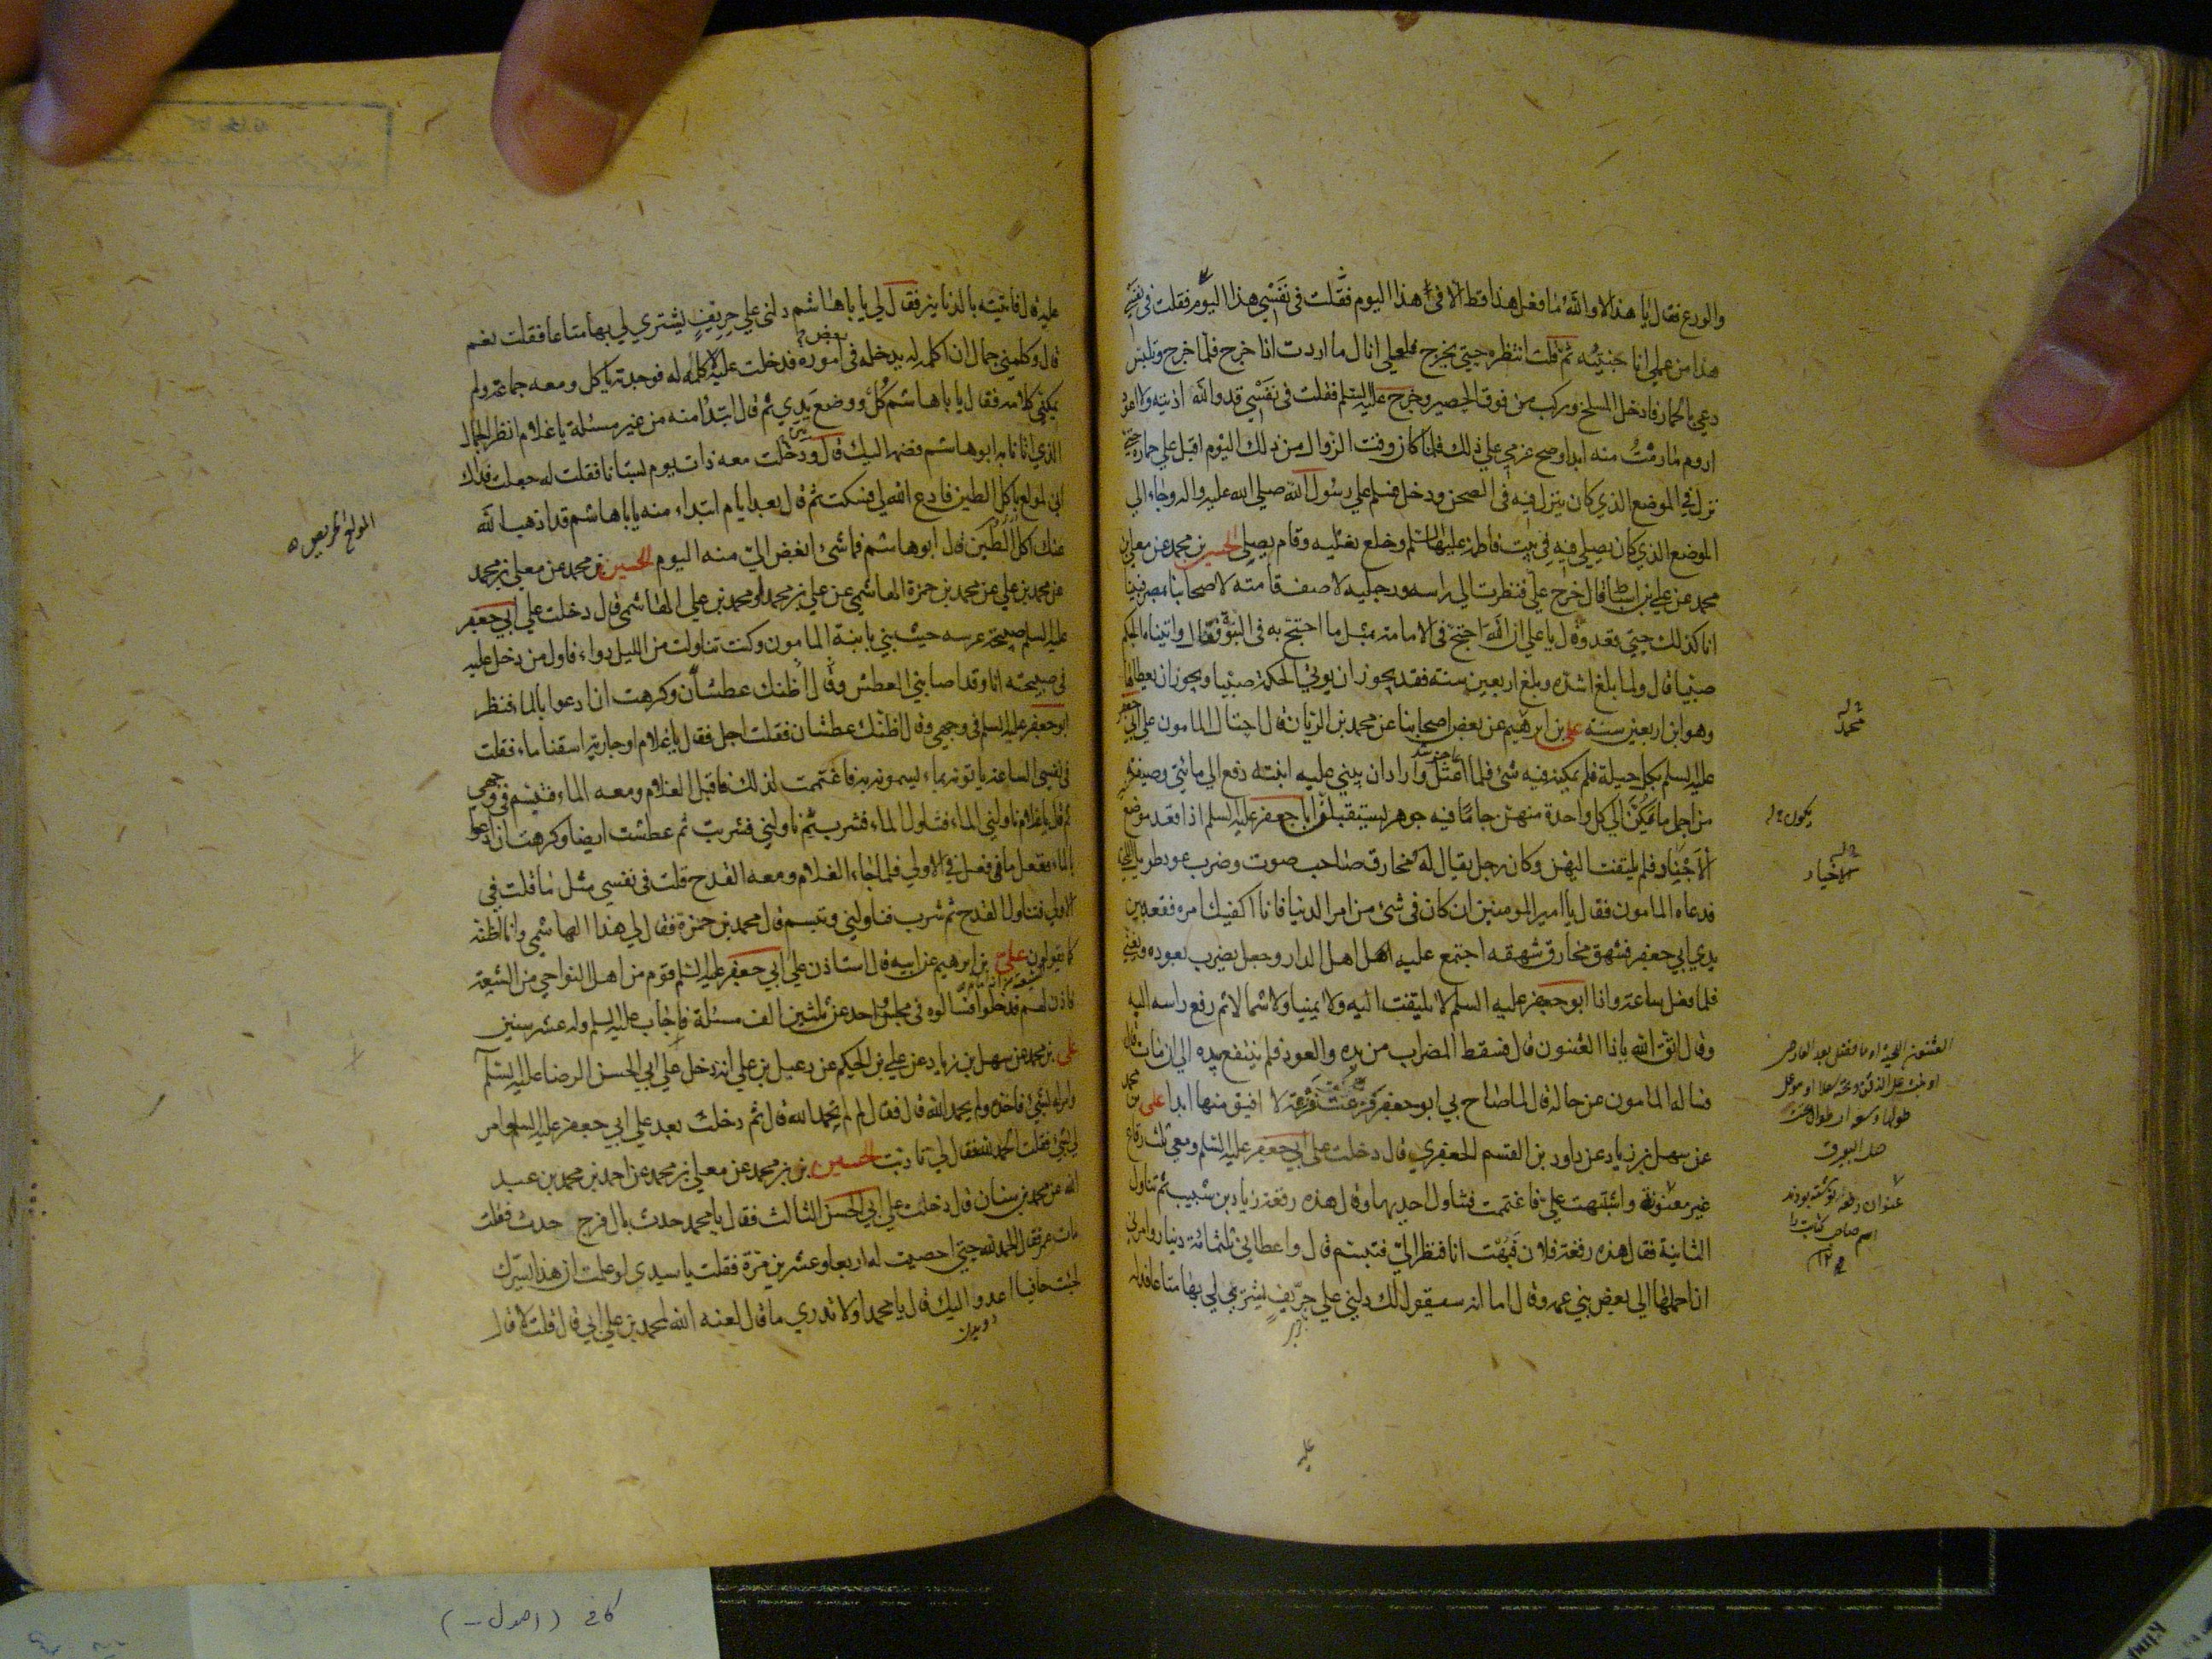 والورع فقال يا هذا لا والله ما فعل هذا قط الا فى هذا اليوم فقلت فى نفسي هذا اليوم فقلت فى نفسي
هذا من عملي انا جنيته ثم قلت انتظره حتي يخرج فلعلي انال ما اردت اذا خرج فلما خرج وتلبس
دعي بالحمار فادخل المسلخ وركب من فوق الحصير وخرج عليه السلم فقلت فى نفسي قد والله اذيته ولا اعود
اروم ما رمت منه ابدا وصح عزمي علي ذلك فلما كان وقت الزوال من ذلك اليوم اقبل علي حماره حتي
نزل في الموضع الذي كان ينزل فيه فى الصحن ودخل فسلم علي رسول الله صلي الله عليه واله وجاء الي
الموضع الذي كان يصلي فيه في بيت فاطمة عليها السلم وخلع نعليه وقام يصلي الحسين بن محمد عن معلي بن
محمد عن علي بن اسباط قال خرج علي فنظرت الي راسه ورجليه لاصف قامته لاصحابنا بمصر فبينا
انا كذلك حتي قعد وقال يا علي ان الله احتج فى الامامة بمثل ما احتج به فى النبوة فقال واتيناه الحكم
صبيا قال ولما بلغ اشده وبلغ اربعين سنة فقد يجوز ان يؤتي الحكمة صبيا ويجوز ان يعطاها
وهو ابن اربعين سنة علي بن ابرهيم عن بعض اصحابنا عن محمد بن الريان قال احتال المامون علي ابي جعفر
عليه السلم بكل حيلة فلم يمكنه فيه شئ فلما اعتل واراد ان يبني عليه ابنته دفع الي مائتي وصيفة
من اجمل ما يمكن الي كل واحدة منهن جاما فيه جوهر يستقبلوا ابا جعفر عليه السلم اذا قعد موضع
الاجناد فلم يلتفت اليهن وكان رجل يقال له مخارق صاحب صوت وضرب عود طويل اللحية
فدعاه المامون فقال يا امير المومنين ان كان فى شئ من امر الدنيا فانا اكفيك امره فقعد بين
يدي ابي جعفر فشهق مخارق شهقه اجتمع عليه اهل اهل الدار وجعل يضرب بعوده ويغني
فلما فعل ساعة واذا ابو جعفر عليه السلم لا يلتفت اليه ولا يمينا ولا شمالا ثم رفع راسه اليه
وقال اتق الله يا ذا العثنون قال فسقط المضراب من يده والعود فلم ينتفع بيده الي ان مات قال
فساله المامون عن حاله قال لما صاح بي ابو جعفر فزعت فزعة لا افيق منها ابدا علي بن محمد
عن سهل بن زياد عن داود بن القسم الجعفري قال دخلت علي ابي جعفر عليه السلم ومعي ثلث رقاع
غير معنونة واشتبهت علي فاغتممت فتناول احديهما وقال هذه رقعة زياد بن شبيب ثم تناول
الثانية فقال هذه رقعة فلان فبهت انا فنظر الي فتبسم قال واعطاني ثلثمائة دينار وامرني
ان احملها الي بعض بني عمه وقال اما انه سيقول لك دلني علي حريف يشتري لي بها متاعا فدله
محمد
يكون
الاخيار
عنوان رقعه نوشته بودند
اسم صاحب كتابت را
١٢
عليه
عليه قال فاتيته بالدنانير فقال لي يا باهاشم دلني علي حريف يشتري لي بها متاعا فقلت نعم
قال وكلمني جمال ان اكلمه له يدخله فى بعض اموره فدخلت عليه لاكلمه له فوجدته ياكل ومعه جماعة ولم
يمكني كلامه فقال يا باهاشم كل ووضع يدي ثم قال ابتدا منه من غير مسئلة يا غلام انظر الجمال
الذي اتانا به ابو هاشم فضمه اليك قال ودخلت معه ذات يوم بستانا فقلت له جعلت فداك
اني لمولع باكل الطين فادع الله لي فسكت ثم قال بعد ايام ابتداء منه يا باهاشم قد اذهب الله
عنك اكل الطين قال ابو هاشم فما شئ ابغض الي منه اليوم الحسين بن محمد عن معلي بن محمد
عن محمد بن علي عن محمد بن حمزة الهاشمي عن علي بن محمد او محمد بن علي الهاشمى قال دخلت علي ابي جعفر
عليه السلم صبيحة عرسه حيث بني بابنة المامون وكنت تناولت من الليل دواء فاول من دخل عليه
فى صبيحته انا وقد اصابني العطش وقال اظنك عطشان وكرهت ان ادعوا بالماء فنظر
ابو جعفر عليه السلم فى وجهي وقال اظنك عطشان فقلت اجل فقال يا غلام او جارية اسقنا ماء فقلت
فى نفسي الساعة ياتونه بماء يسمونه به فاغتممت لذلك فاقبل الغلام ومعه الماء فتبسم فى وجهي
ثم قال يا غلام ناولني الماء فتناول الماء فشرب ثم ناولني فشربت ثم عطشت ايضا وكرهت ان ادعوا
بالماء ففعل ما فعل في الاولي فلما جاء الغلام ومعه القدح قلت فى نفسي مثل ما قلت في
الاولي فتناول القدح ثم شرب فناولني وتبسم قال محمد بن حمزة فقال لي هذا الهاشمي وانا اظنه
كما يقولون علي بن ابرهيم عن ابيه قال استاذن علي ابي جعفر عليه السلم قوم من اهل النواحي من الشيعة
فاذن لهم فدخلوا فسالوه فى مجلس واحد عن ثلثين الف مسئلة فاجاب عليه السلم وله عشر سنين
علي بن محمد عن سهل بن زياد عن علي بن الحكيم عن دعبل بن علي انه دخل علي ابي الحسن الرضا عليه السلم
وامر له بشئ فاخذه ولم يحمد الله قال فقال له لم لم تحمد الله قال ثم دخلت بعد علي ابي جعفر عليه السلم وامر
لي بشئ فقلت الحمد لله فقال لي تادبت الحسين بن محمد عن معلي بن محمد عن احمد بن محمد بن عبد
الله عن محمد بن سنان قال دخلت علي ابي الحسن الثالث فقال يا محمد حدث بال فرج حدث فقلت
مات عمر فقال الحمد لله حتي احصيت له اربعا وعشرين مرة فقلت يا سيدي لو علمت ان هذا يسرك
لجئت حافيا اعدوا اليك قال يا محمد اولا تدري ما قال لعنه الله لمحمد بن علي ابي قال قلت لا قال
المولع الحريص
كافى (اصول -)